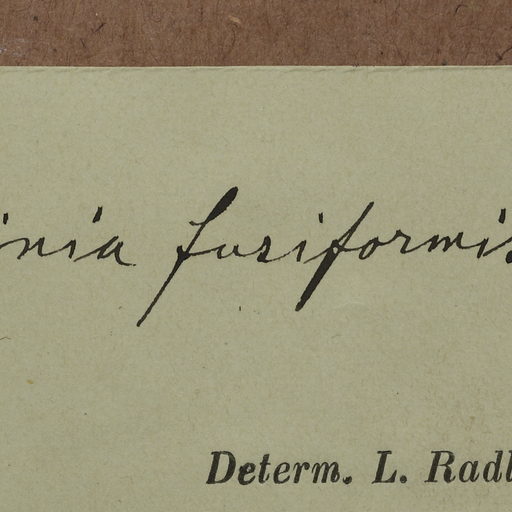 inia fusiformis
Determ. L. Radl